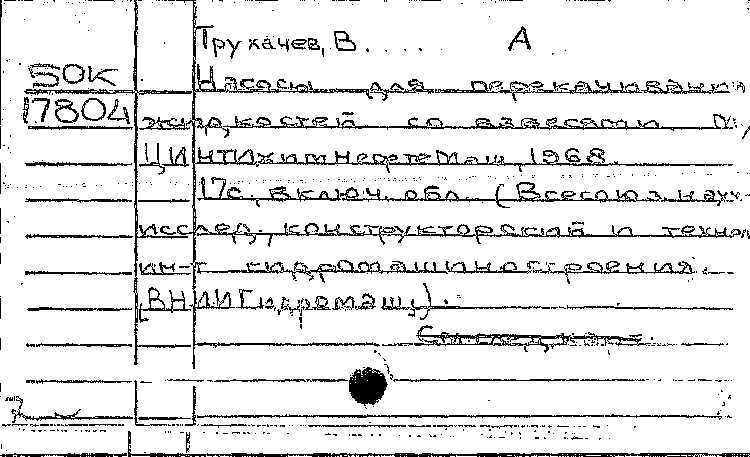 Трухачев, В. А
50К
Насосы для перекачивани
17804
жидкостей со взвесями М.,
ЦИНТИхимнефтемаш, 1968.
17с., включ. обл. (Всесоюз. науч
исслед., конструкторский и технол
ин-т гидромашиностроения.
(ВНИИГидромаш).
См. след. карт.